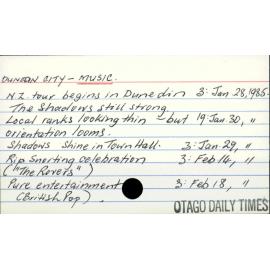 DUNEDIN CITY - MUSIC.
NZ tour begins in Dunedin 3: Jan 28, 1985.
The Shadows still strong
Local ranks looking thin - but 19: Jan 30, "
orientation looms.
Shadows Shine in Town Hall. 3: Jan 29, "
Rip Snorting celebration 3: Feb 14, "
("The Rovers")
Pure entertainment 3: Feb 18, "
(British Pop)
OTAGO DAILY TIMES